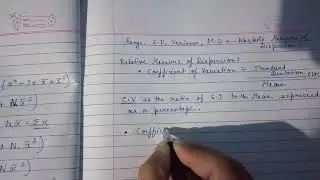 Range, S.D, Variance, M.D → Absolute Measure of
Dispersion
Relative Measure of Dispersion:
• Coefficient of Variation = Standard
Deviation
Mean
C.V is the ratio of S.D to the Mean expressed
as a percentage.
• Coeffici
+ N x̄²
N x̄ = Σx